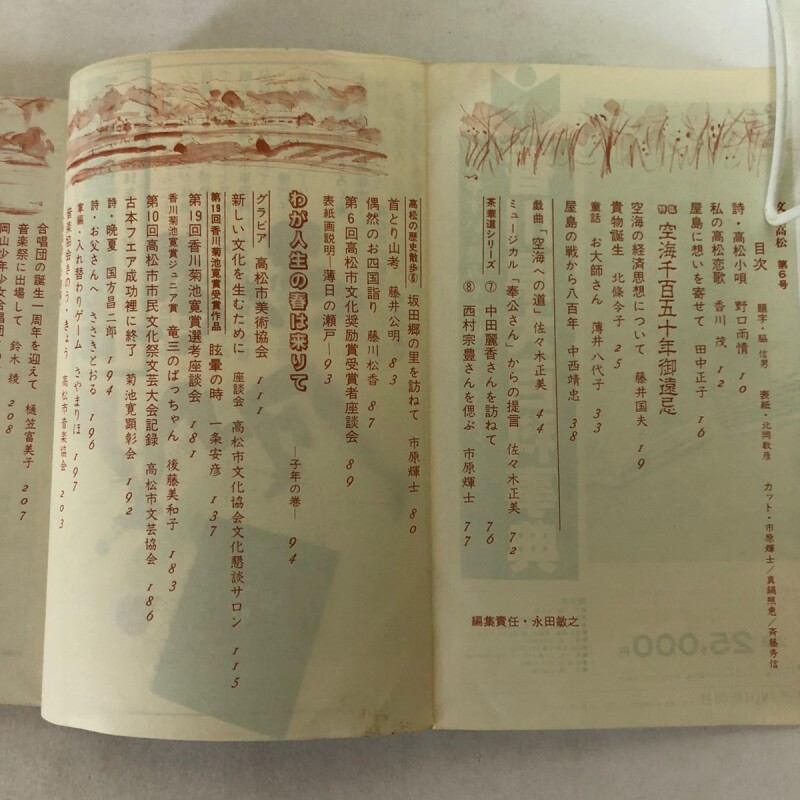 文
高松 第6号
目次
題字・脇 信男
表紙・北岡敏彦
カット・市原輝士/真鍋照尭/斉藤秀信
詩・高松小唄 野口雨情 10
私の高松恋歌 香川茂 12
屋島に想いを寄せて 田中正子 16
特集 空海千百五十年御遠忌
空海の経済思想について 藤井国夫 19
貴物誕生 北條令子 25
童話 お大師さん 薄井八代子 33
屋島の戦から八百年 中西靖忠 38
戯曲「空海への道」 佐々木正美 44
ミュージカル「奉公さん」からの提言 佐々木正美 72
茶華道シリーズ ⑦ 中田麗香さんを訪ねて 76
⑧ 西村宗豊さんを偲ぶ 市原輝士 77
編集責任・永田敏之
高松の歴史散歩⑥ 坂田郷の里を訪ねて 市原輝士 80
首とり山考 藤井公明 83
偶然のお四国詣り 藤川松香 87
第6回高松市文化奨励賞受賞者座談会 89
表紙画説明―薄日の瀬戸―93
わが人生の春は来りて ―子年の巻― 94
グラビア 高松市美術協会 111
新しい文化を生むために 座談会 高松市文化協会文化懇談サロン 115
第19回香川菊池寛賞受賞作品 眩暈の時 一条安彦 137
第19回香川菊池寛賞選考座談会 181
香川菊池寛賞ジュニア賞 竜三のばっちゃん 後藤美和子 183
第10回高松市市民文化祭文芸大会記録 高松市文芸協会 186
古本フエア成功裡に終了 菊池寛顕彰会 192
詩・晩夏 国方昌二郎 194
詩・お父さんへ ささきとおる 196
掌編・入れ替わりゲーム さやまりほ 197
音楽協会きのう・きょう 高松市音楽協会 203
合唱団の誕生一周年を迎えて 樋笠富美子 207
音楽祭に出場して 鈴木綾 208
岡山少年少女合唱団
25,000円